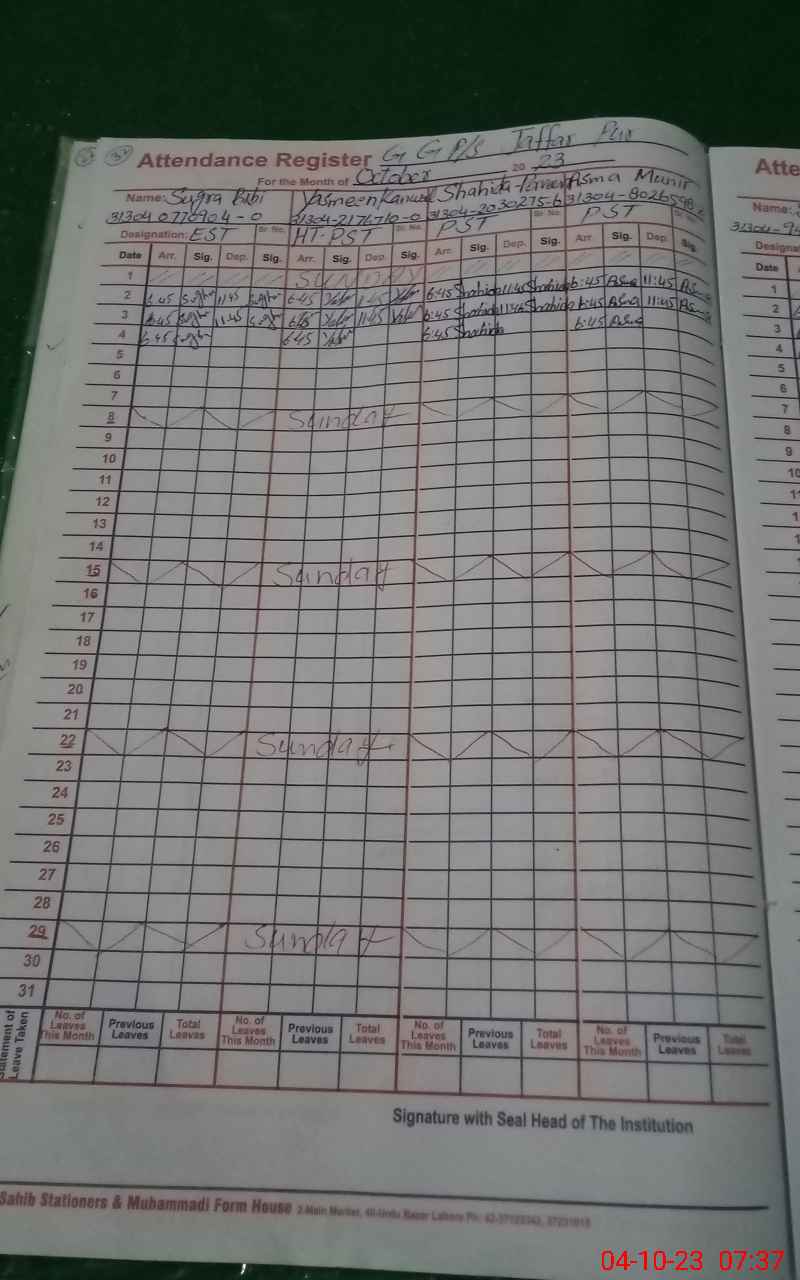 Attendance Register G G P/S Jaffar Pur
For the Month of October 20 23
Name: Sugra Bibi Yasmeen Kanwal Shahida Parveen Asma Munir
31304 0770904-0 31304-2176710-0 31304-2030275-6 31304-8026598-
Designation: EST Sr. No. HT-PST Sr. No. PST Sr. No. PST Sr. No.
Date Arr. Sig. Dep. Sig. Arr. Sig. Dep. Sig. Arr. Sig. Dep. Sig. Arr. Sig. Dep. Sig.
1 SUNDAY
2 6:45 Sughra 11:45 Sughra 6:45 11:45 6:45 Shahida 11:45 Shahida 6:45 Asma 11:45 Asma
3 6:45 Sughra 11:45 Sughra 6:45 11:45 6:45 Shahida 11:45 Shahida 6:45 Asma 11:45 Asma
4 6:45 Sughra 6:45 6:45 Shahida 6:45 Asma
5
6
7
8 Sunday
9
10
11
12
13
14
15 Sunday
16
17
18
19
20
21
22 Sunday
23
24
25
26
27
28
29 Sunday
30
31
Statement of Leave Taken
No. of Leaves This Month Previous Leaves Total Leaves No. of Leaves This Month Previous Leaves Total Leaves No. of Leaves This Month Previous Leaves Total Leaves No. of Leaves This Month Previous Leaves Total Leaves
Signature with Seal Head of The Institution
Sahib Stationers & Muhammadi Form House 2-Main Market, 40-Urdu Bazar Lahore Ph:
Atte
Name:
31304-94
Designa
Date
1
2
3
4
5
6
7
8
9
10
11
12
1
04-10-23 07:37